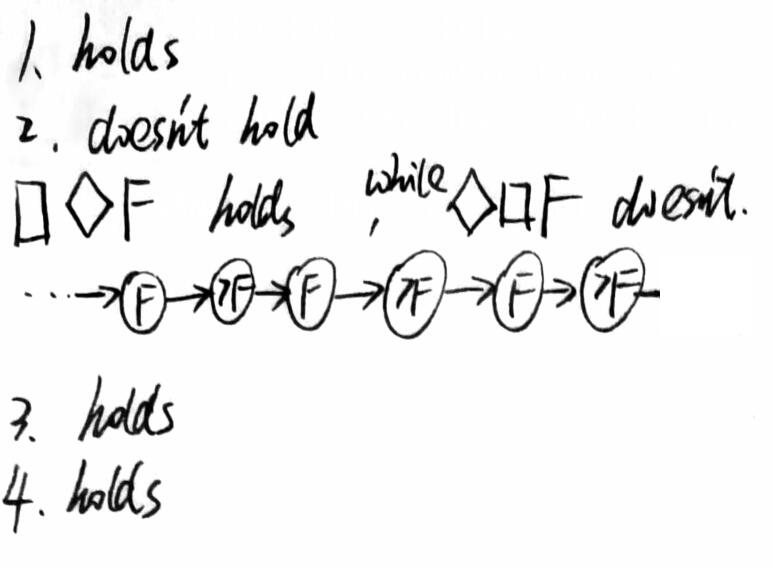 1. holds
2. doesn't hold
□◇F holds, while ◇□F doesn't.
...→ F → ?F → F → ?F → F → ?F
3. holds
4. holds